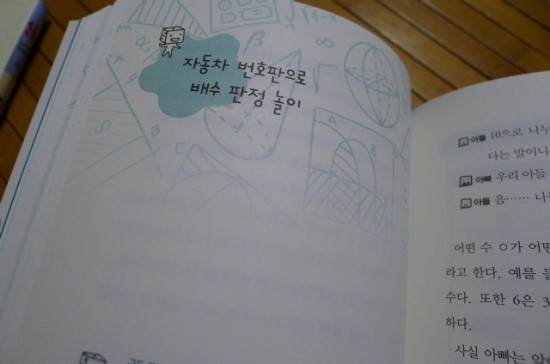 자동차 번호판으로
배수 판정 놀이
아들 10으로 나누
다는 말이니
아빠 우리 아들
아들 음…… 나
어떤 수 ㅇ가 어떤
라고 한다. 예를 들
수다. 또한 6은 3
하다.
사실 아빠는